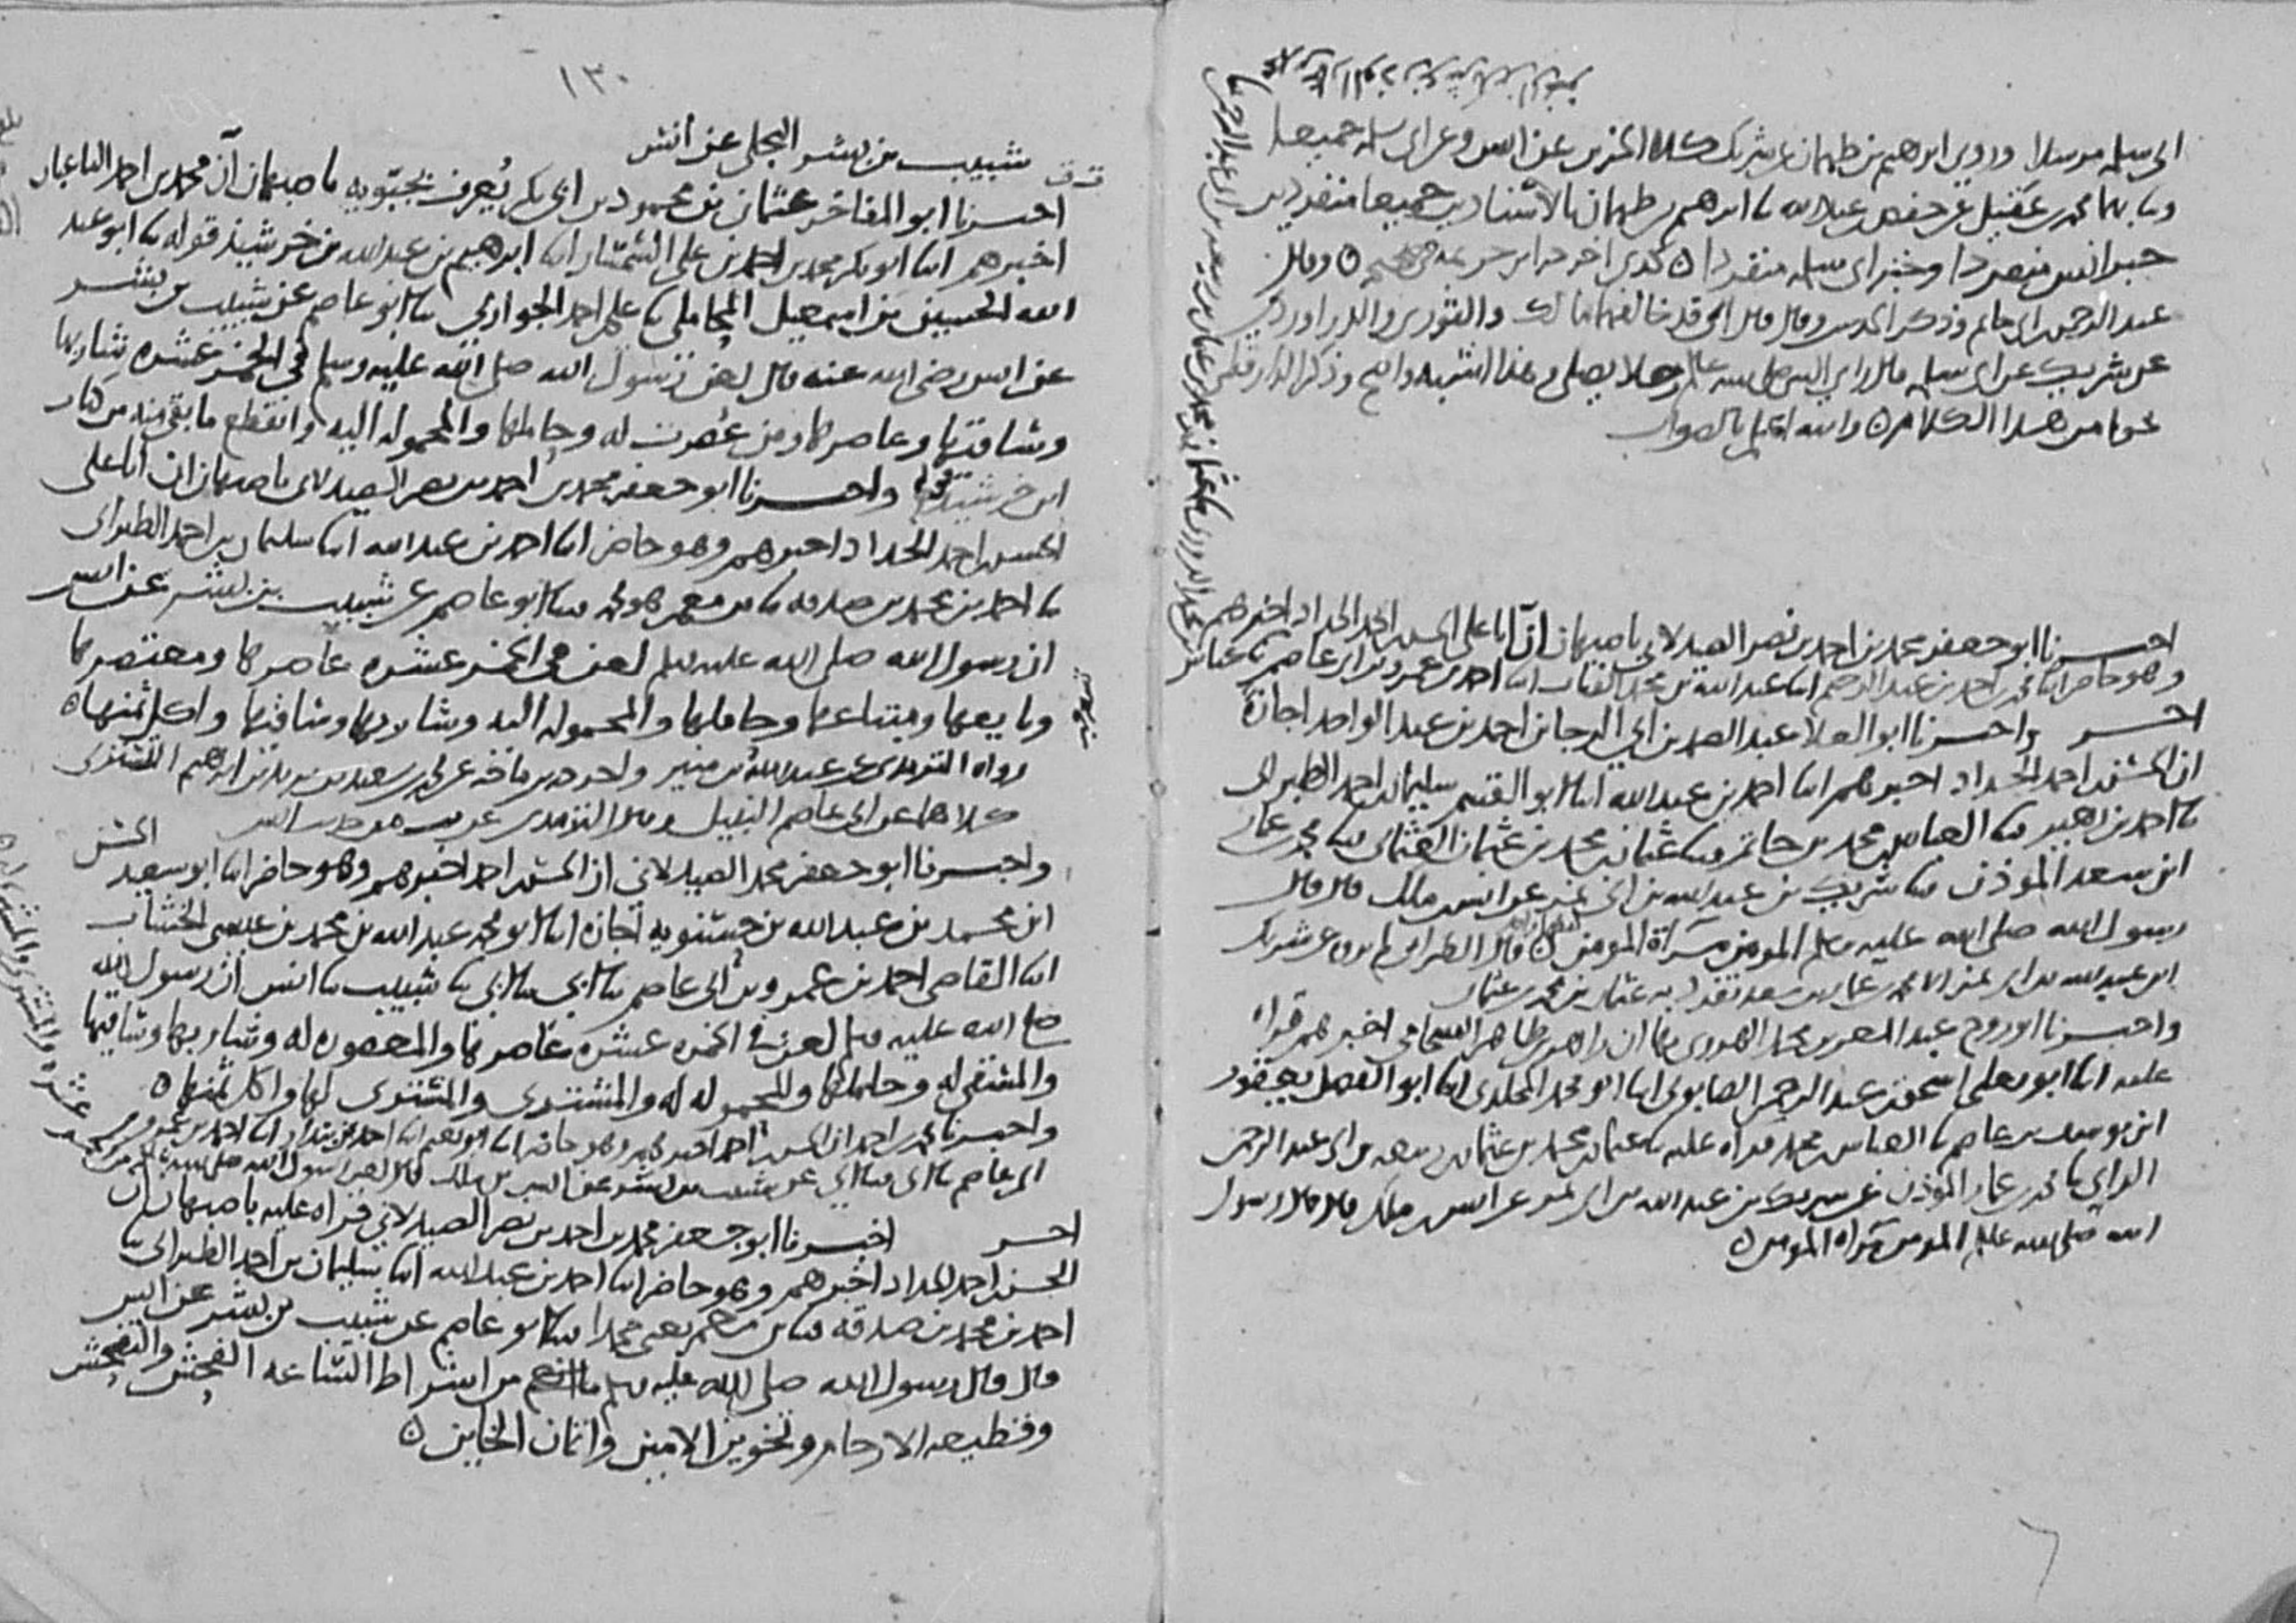 ابي سلمة مرسلا وروى ابرهيم بن طهمان عن شريك كلا الخبرين عن انس وعن ابي سلمة جميعا
وثنا بهما محمد بن عقيل عن حفص بن عبد الله ثنا ابرهيم بن طهمان بالاسنادين جميعا منفردين
خبر انس منفردا وخبر ابي سلمة منفردا ٥ كذى اخرجه ابن خزيمة في صحيحه ٥ وقال
عبد الرحمن بن ابي حاتم وذكر الحديث وقال قال ابي قد خالفهما مالك والثوري والدراوردي
عن شريك عن ابي سلمة قال راى النبي صلى الله عليه وسلم رجلا يصلي وهذا اشبه واصح وذكر الدارقطني
نحوا من هذا الكلام ٥ والله اعلم بالصواب
اخبرنا ابو جعفر محمد بن احمد بن نصر الصيدلاني باصبهان ان ابا علي الحسن بن احمد الحداد اخبرهم
وهو حاضر ابنا احمد بن عبد الرحيم ابنا عبد الله بن محمد القباب ابنا احمد بن عمرو بن ابي عاصم ثنا عباس
اخبر واخبرنا ابو العلا عبد الصمد بن ابي الرجا بن احمد بن عبد الواحد اجازة
ان الحسن بن احمد الحداد اخبرهم ابنا احمد بن عبد الله ابنا ابو القسم سليمان بن احمد الطبراني
ثنا احمد بن زهير ثنا العباس بن محمد بن حاتم ثنا عثمان بن محمد بن عثمان العثماني ثنا محمد بن عمار
ابن سعد المؤذن ثنا شريك بن عبد الله بن ابي نمر عن انس بن ملك قال قال
رسول الله صلى الله عليه وسلم المومن مرآة المومن ٥ قال الطبراني لم يرو عن شريك
ابن عبد الله بن ابي نمر الا محمد بن عمار بن سعد تفرد به عثمان بن محمد بن عثمان
واخبرنا ابو روح عبد المعز بن محمد الهروي بها ان زاهر بن طاهر الشحامي اخبرهم قراة
عليه ابنا ابو يعلى اسحق بن عبد الرحمن الصابوني ابنا ابو محمد المخلدي ابنا ابو الفضل يعقوب
ابن يوسف بن عاصم ثنا العباس بن محمد قراة عليه ثنا عثمان بن محمد بن عثمان بن ربيعة بن ابي عبد الرحمن
الراي ثنا محمد بن عمار المؤذن عن شريك بن عبد الله بن ابي نمر عن انس بن ملك قال قال رسول
الله صلى الله عليه وسلم المومن مرآة المومن ٥
١٣٠
شبيب بن بشر البجلي عن أنس
ت ق
اخبرنا ابو المفاخر عثمان بن محمود بن ابي بكر يُعرف بحبّويه باصبهان أن محمد بن احمد الباغبان
اخبرهم ابنا ابو بكر محمد بن احمد بن علي السمسار ابنا ابرهيم بن عبد الله بن خرشيذ قوله ثنا ابو عبد
الله الحسين بن اسمعيل المحاملي ثنا علي بن احمد الجواربي ثنا ابو عاصم عن شبيب بن بشر
عن انس رضي الله عنه قال لعن رسول الله صلى الله عليه وسلم في الخمر عشره شاربها
وساقيها وعاصرها ومن عُصرت له وحاملها والمحمولة اليه وانقطع ما بقي منه من كتاب
ابن خرشيذ قوله واخبرنا ابو جعفر محمد بن احمد بن نصر الصيدلاني باصبهان ان ابا علي
الحسن بن احمد الحداد اخبرهم وهو حاضر ابنا احمد بن عبد الله ابنا سليمان بن احمد الطبراني
ثنا احمد بن محمد بن صدقة ثنا بن معمر هو محمد ثنا ابو عاصم عن شبيب بن بشر عن انس
ان رسول الله صلى الله عليه وسلم لعن في الخمر عشره عاصرها ومعتصرها
وبايعها ومبتاعها وحاملها والمحمولة اليه وشاربها وساقيها واكل ثمنها ٥
رواه الترمذي عن عبد الله بن منير وابن ماجه عن محمد بن سعيد بن يزيد بن ابرهيم التستري
كلاهما عن ابي عاصم النبيل وقال الترمذي غريب من حديث انس
واخبرنا ابو جعفر محمد الصيدلاني ان الحسن بن احمد اخبرهم وهو حاضر ابنا ابو سعيد الحسن
ابن محمد بن عبد الله بن حسنويه اجازة ابنا ابو محمد عبد الله بن محمد بن عيسى الخشاب
ابنا القاضي احمد بن عمرو بن أبي عاصم ثنا ابي ثنا ابي ثنا شبيب ثنا انس أن رسول الله
صلى الله عليه وسلم لعن في الخمر عشره عاصرها والمعصورة له وشاربها وساقيها
والمستقى له وحاملها والمحمولة له والمشترى والمشتري لها واكل ثمنها ٥
واخبرنا محمد بن احمد ان الحسن بن احمد اخبرهم وهو حاضر ابنا ابو نعيم ابنا احمد بن بندار ابنا احمد بن عمرو بن
ابي عاصم ثنا ابي ثنا ابي عن شبيب بن بشر عن انس بن ملك قال لعن رسول الله صلى الله عليه وسلم
اخبر اخبرنا ابو جعفر محمد بن احمد بن نصر الصيدلاني قراة عليه باصبهان ان
الحسن بن احمد الحداد اخبرهم وهو حاضر ابنا احمد بن عبد الله ابنا سليمان بن احمد الطبراني ثنا
احمد بن محمد بن صدقة ثنا بن معمر يعني محمدا ثنا ابو عاصم عن شبيب بن بشر عن انس
قال قال رسول الله صلى الله عليه وسلم من اشراط الساعة الفحش والتفحش
وقطيعة الارحام وتخوين الامين وائتمان الخاين ٥